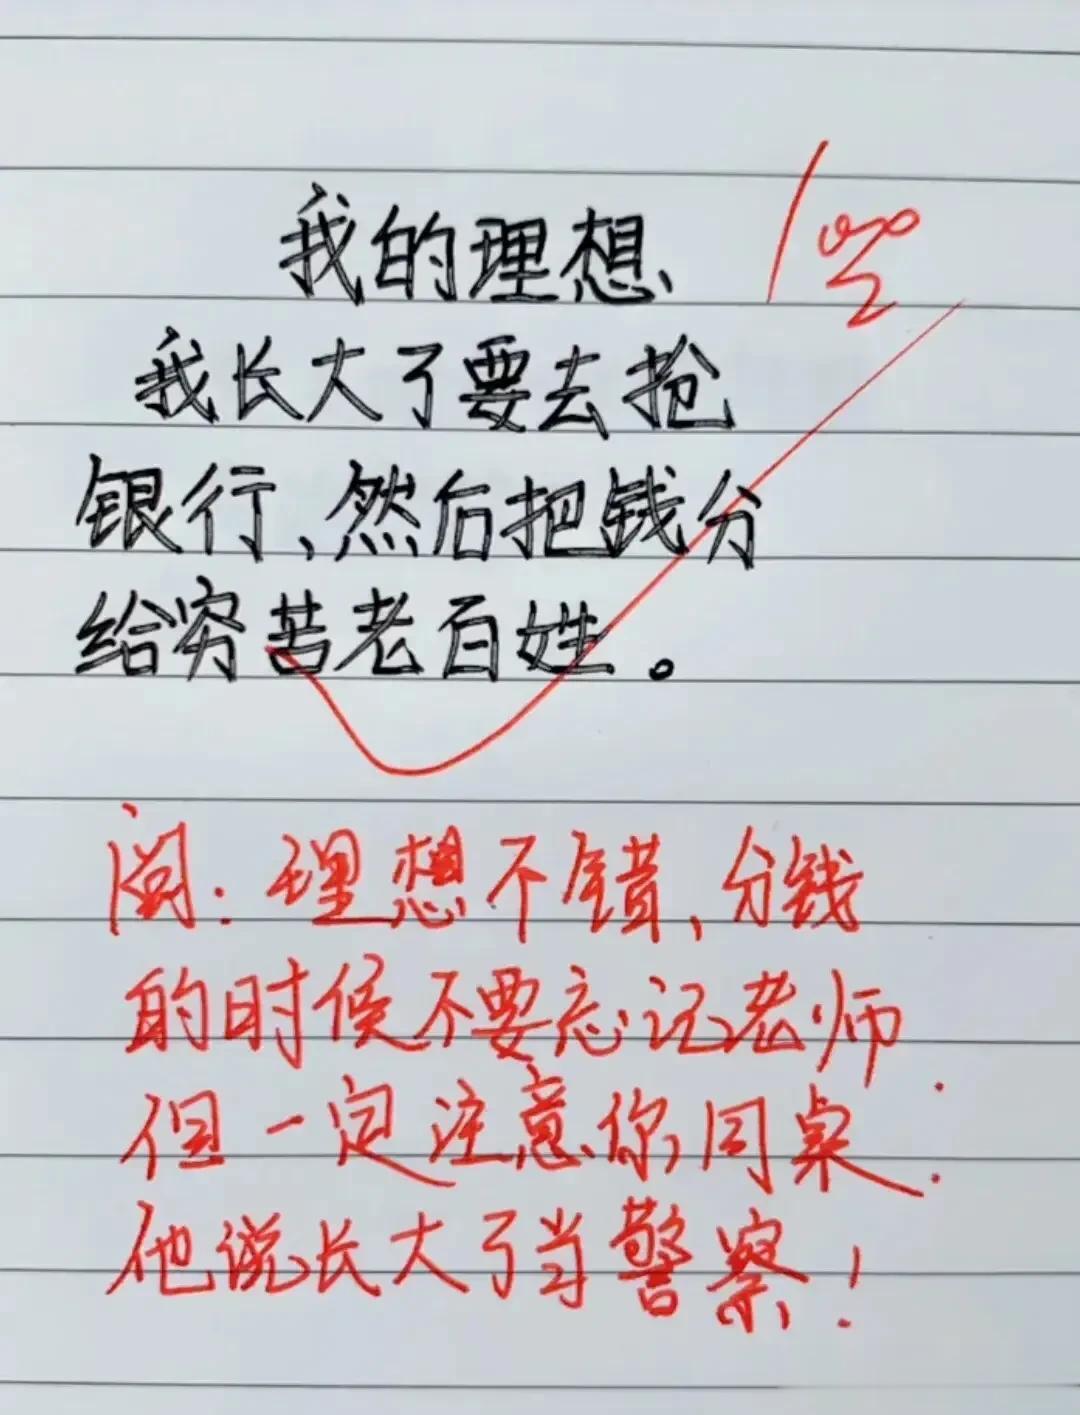 我的理想
100
我长大了要去抢
银行、然后把钱分
给穷苦老百姓。
阅:理想不错,分钱
的时候不要忘记老师.
但一定注意你同桌.
他说长大了当警察!